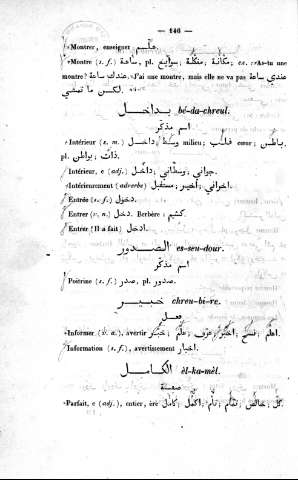 — 146 —
Montrer, enseigner عليم.
Montre (s. f.) ساعة, pl. سوايع; مكانة, منقلة; ex. : As-tu une
montre? عندك ساعة? J'ai une montre, mais elle ne va pas عندي ساعة
لكن ما تمضي.
بداخل bé-da-chreul.
اسم مذكر
Intérieur (s. m.) داخل; وسط milieu; قلب cœur; باطن,
pl. بواطن; ذات.
Intérieur, e (adj.) داخل; وسطاني; جواني.
Intérieurement (adverbe)
Entrée (s. f.) دخول.
Entrer (v. n.) دخل. Berbère :
Entrer (Il a fait) ادخل.
الصدور es-seu-dour.
اسم مذكر
Poitrine (s. f.) صدر, pl. صدور.
خبير chreu-bi-re.
فعل
Informer (v. a.), avertir خبّر; علّم; عرّف; اخبر;
Information (s. f.), avertissement اخبار.
الكامل èl-ka-mèl.
صفة
Parfait, e (adj.), entier, ère كامل; اكمل; تام; خالص; كل.